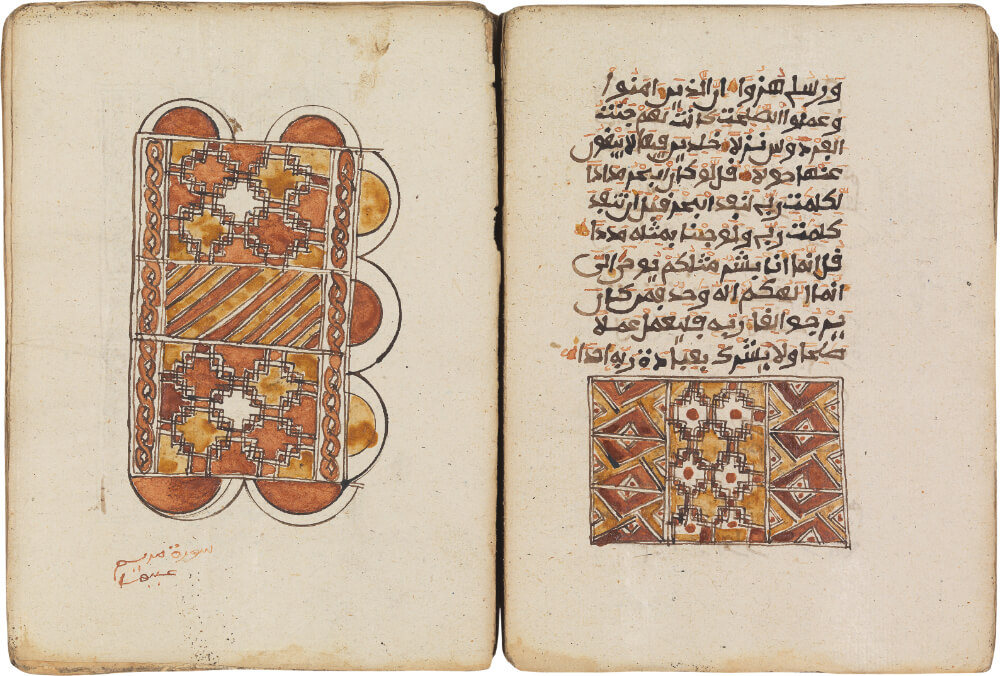 ورسلي هزوا ان الذين امنوا
وعملوا الصلحت كانت لهم جنت
الفردوس نزلا خلدين فيها لا يبغون
عنها حولا قل لو كان البحر مدادا
لكلمت ربي لنفد البحر قبل ان تنفد
كلمت ربي ولو جئنا بمثله مددا
قل انما انا بشر مثلكم يوحى الي
انما الهكم اله وحد فمن كان
يرجوا لقا ربه فليعمل عملا
صلحا ولا يشرك بعبادة ربه احدا
سورة مريم